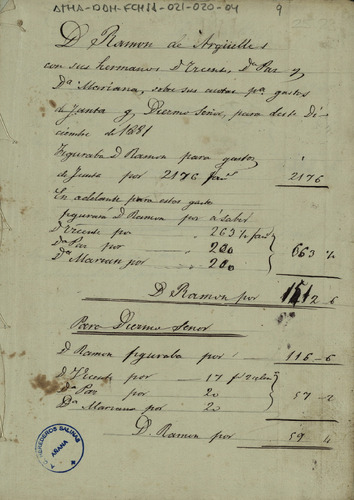 ATHA-DDH-FCHSA-021-020-04
9
D. Ramon de Argüelles
con sus hermanos Dn Vicente, Da Paz y
Da Mariana, sobre sus cuotas pa gastos
de Junta y Diezmo Señor, para desde Di-
ciembre de 1881
Figuraba D. Ramon para gastos
de Junta por 2176 2176
En adelante para estos gastos
figurará D. Ramon por a saber
Dn Vicente por 263 1/2
Da Paz por 200 663 1/2
Da Marian por 200
D. Ramon por 1512 6
Para Diezmo Señor
D. Ramon figuraba por 116-6
Dn Vicente por 17
Da Paz por 20 57-2
Da Mariana por 20
D. Ramon por 59 4
HEREDEROS SALINAS
AÑANA